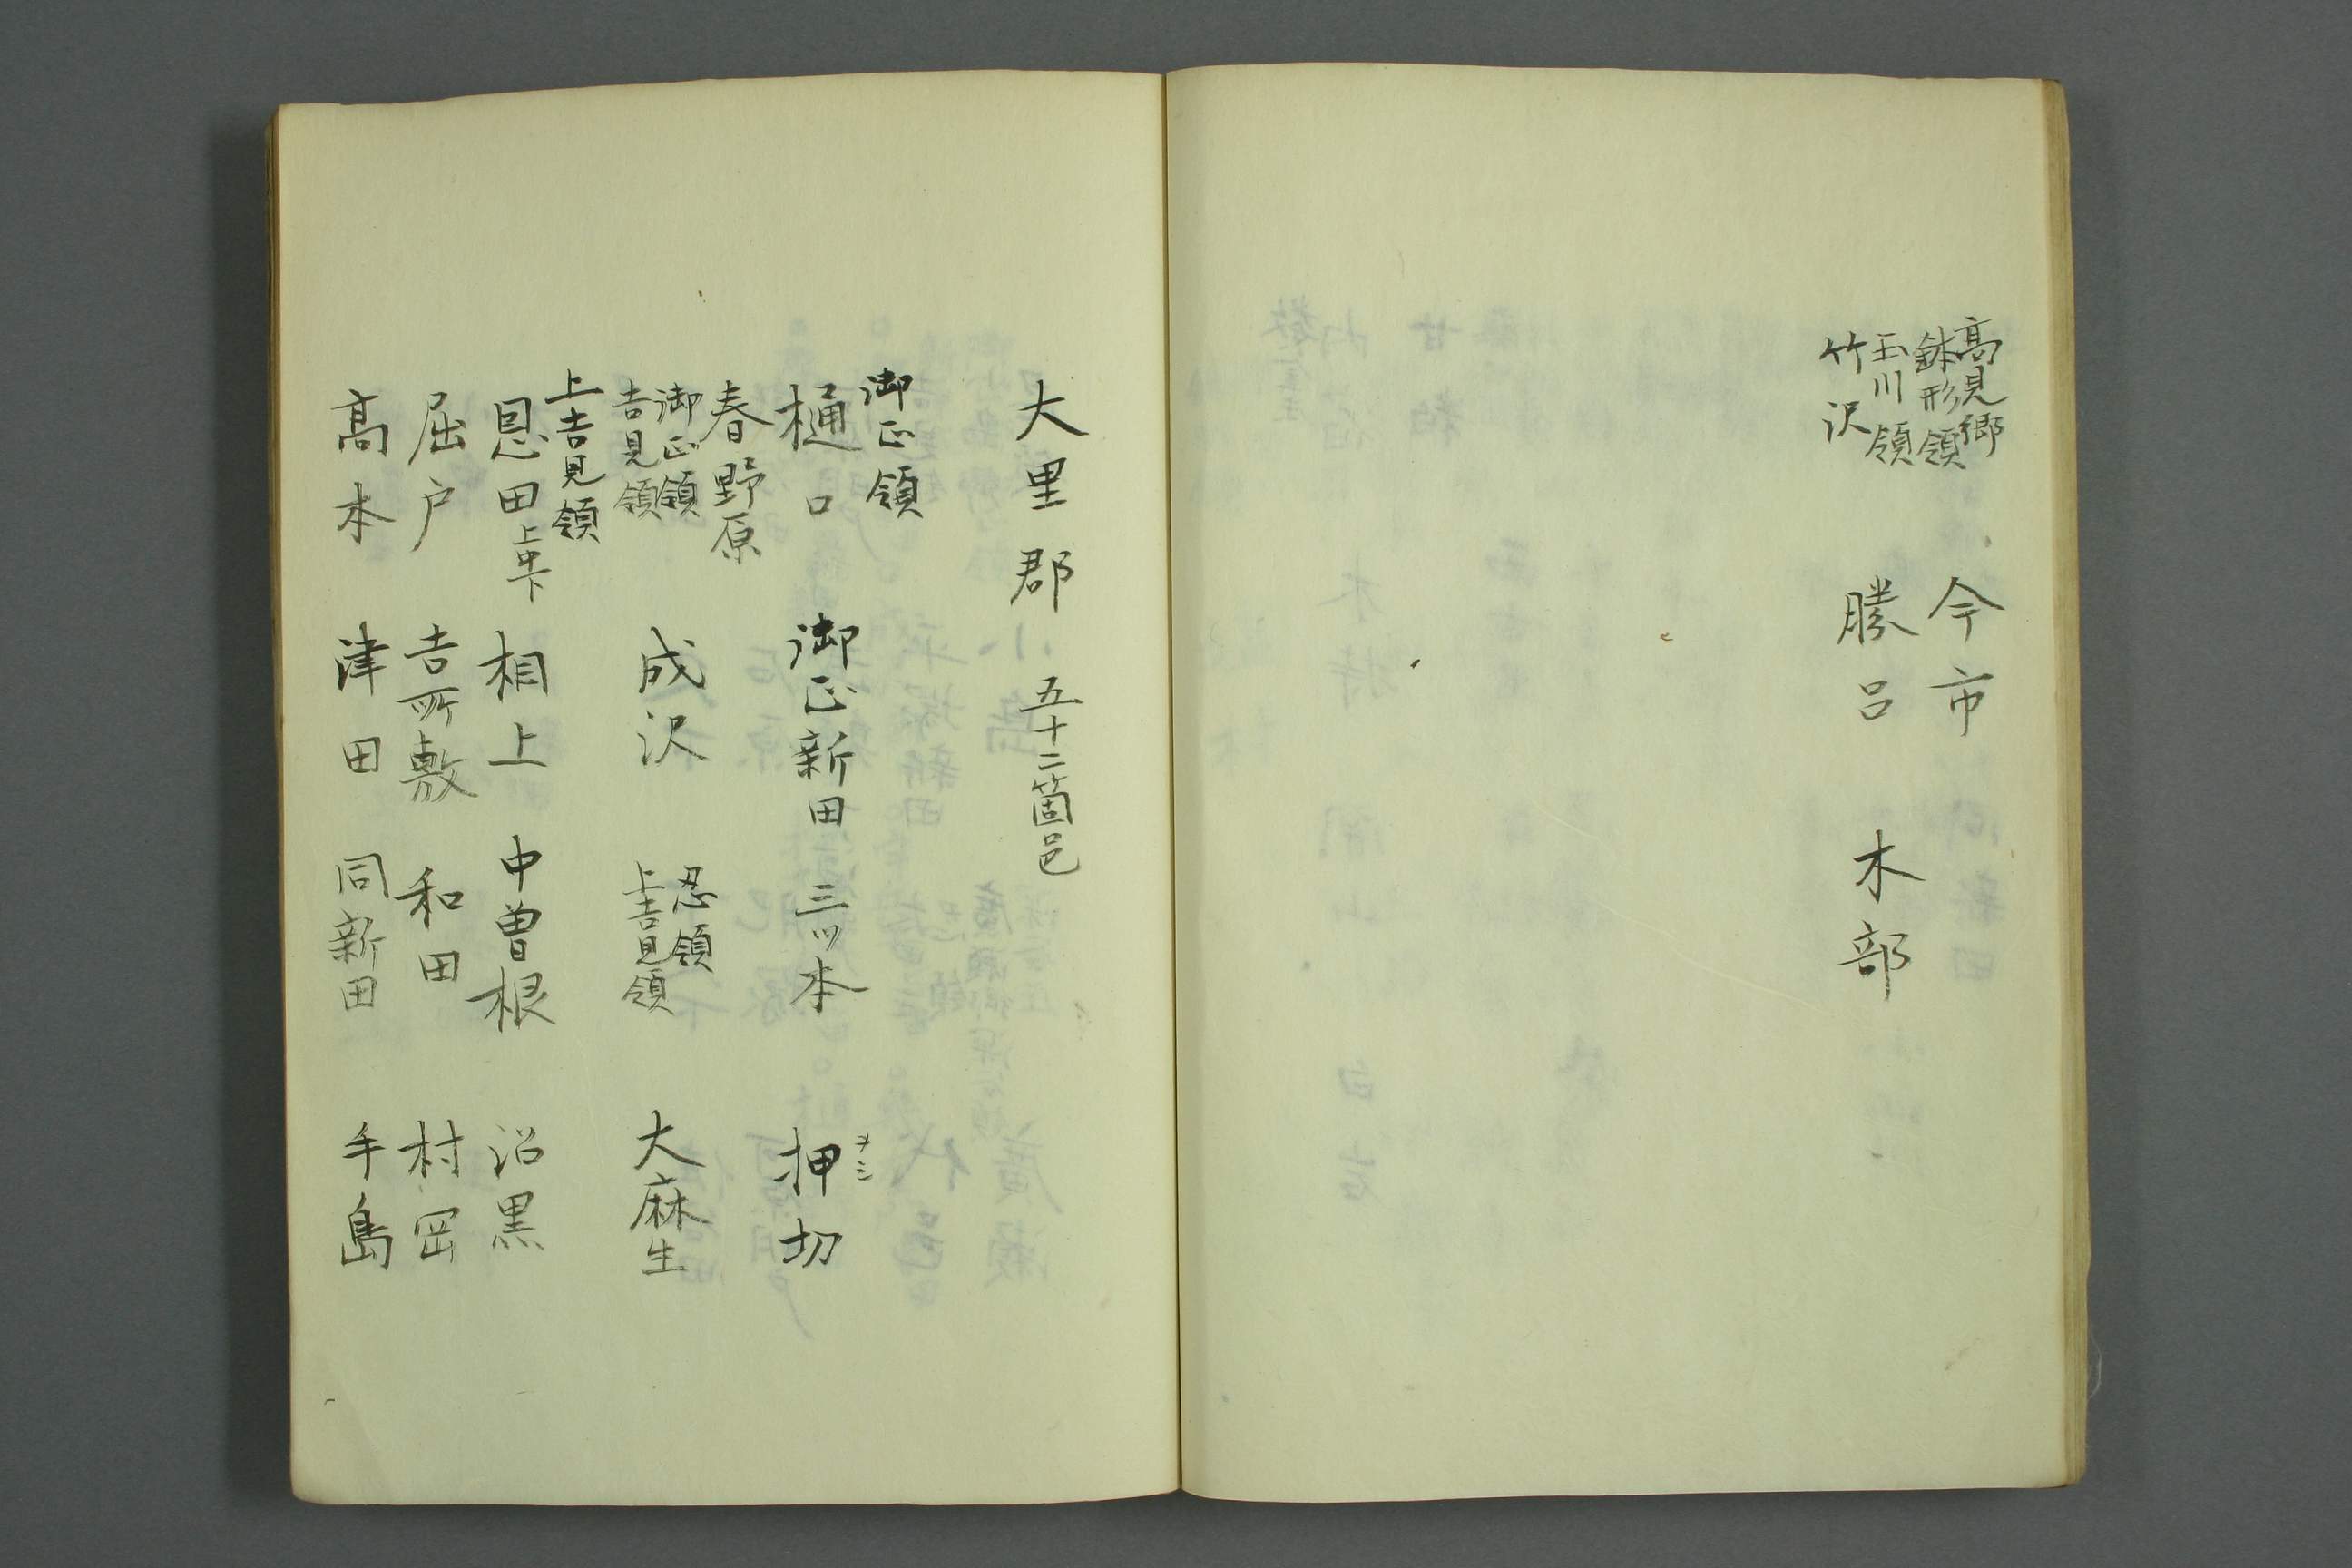 高見郷
鉢形領　今市
玉川領
竹沢　勝呂　木部
大里郡　五十二箇邑
御正領
樋口　御正新田　三ツ本　押切
ヲシ
春野原
御正領
吉見領　成沢　忍領
上吉見領　大麻生
上吉見領
恩田上中下　相上　中曽根　沼黒
屈戸　吉所敷　和田　村岡
高本　津田　同新田　手島